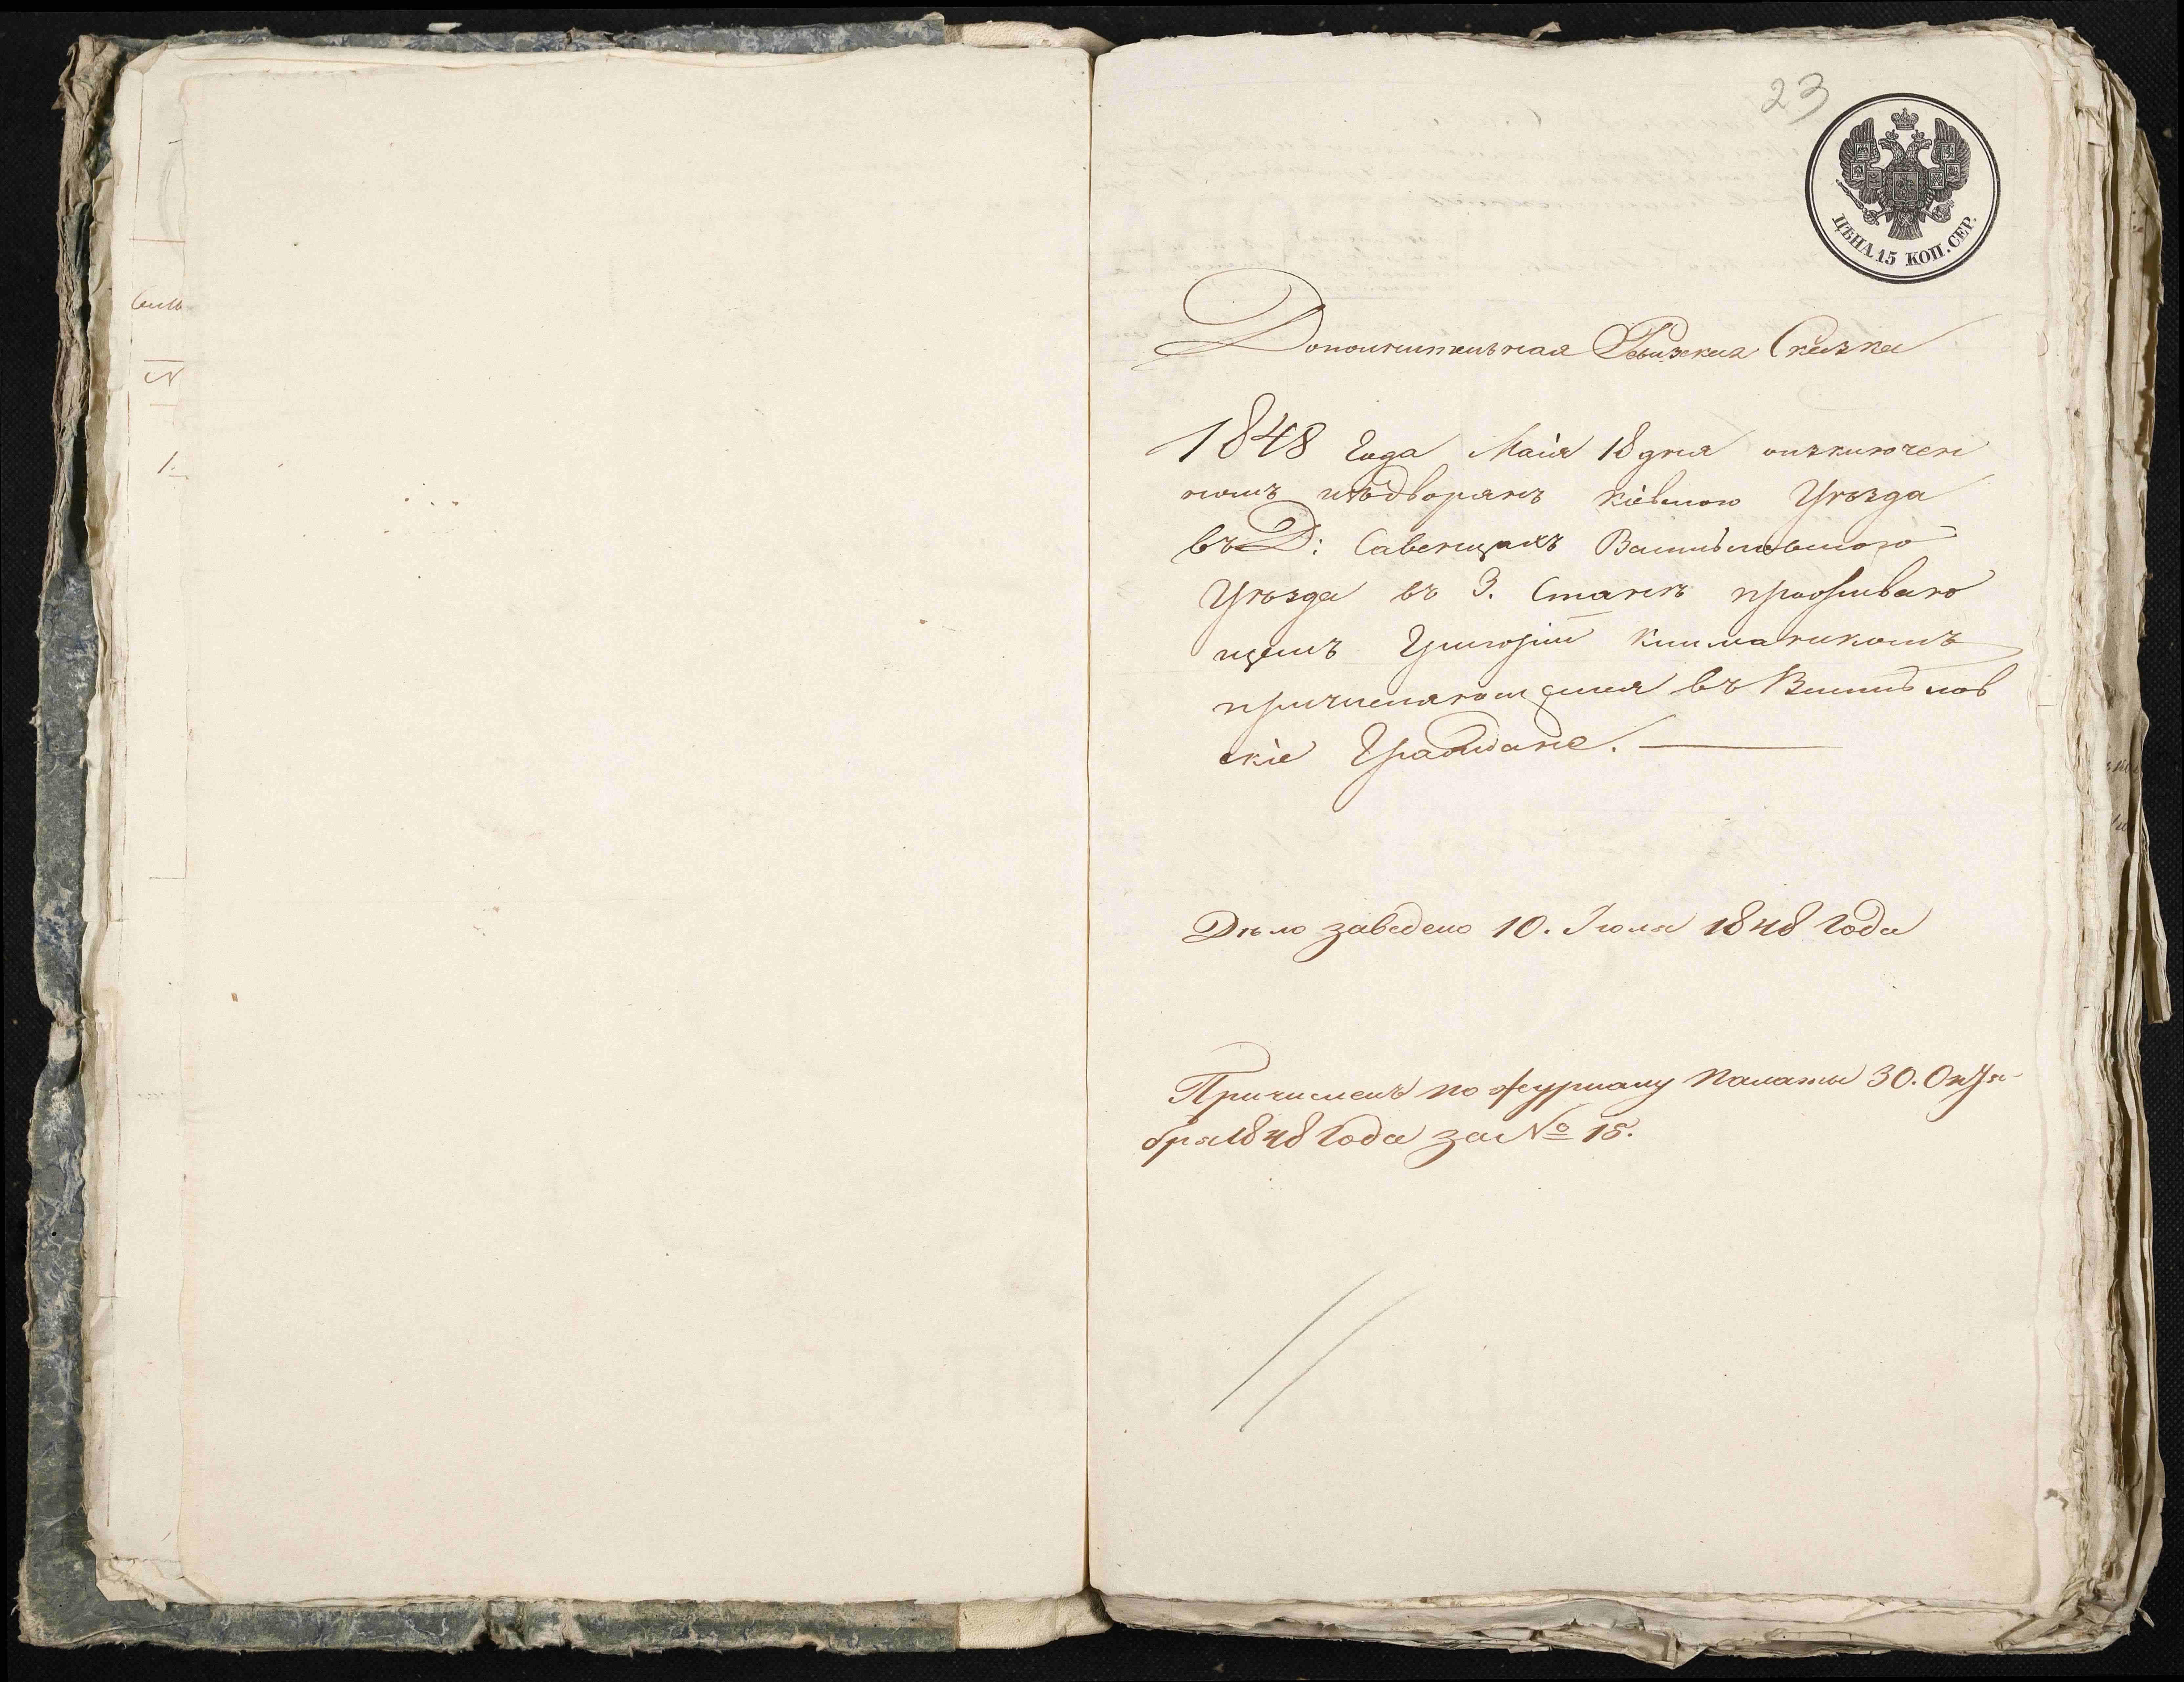 23
ЦѢНА 15 КОП. СЕР.
Дополнительная Ревизская Сказка
1848 Года Маія 18 дня о изключен
номъ изъ Дворянъ Кіевского Уѣзда
въ Д: Савенцахъ Васильковского
Уѣзда въ 3. Станѣ проживаю
щемъ Григоріи Климовиком
причисляющемся въ Васильков
скіе Граждане.
Дѣло заведено 10. Іюля 1848 Года
Причисленъ по журналу Палаты 30. Октя-
бря 1848 Года за № 18.
N
1.